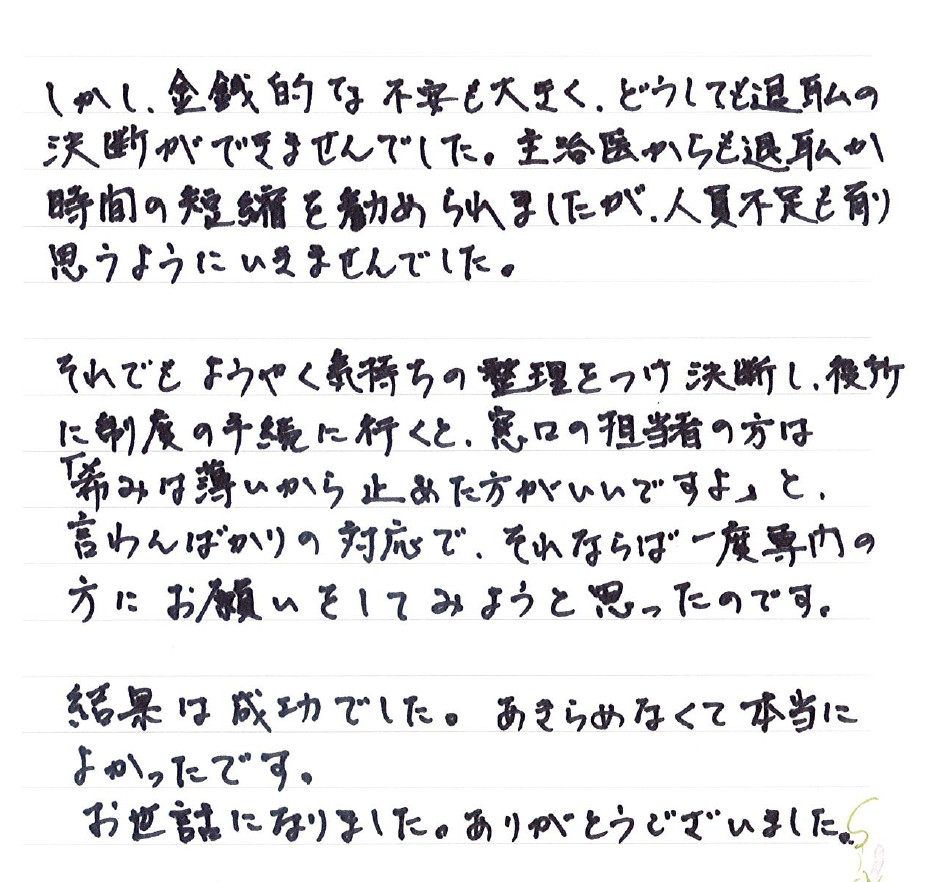 しかし、金銭的な不安も大きく、どうしても退職の
決断ができませんでした。主治医からも退職か
時間の短縮を勧められましたが、人員不足も有り
思うようにいきませんでした。
それでもようやく気持ちの整理をつけ決断し、役所
に制度の手続に行くと、窓口の担当者の方は
「希みは薄いから止めた方がいいですよ」と、
言わんばかりの対応で、それならば一度専門の
方にお願いをしてみようと思ったのです。
結果は成功でした。あきらめなくて本当に
よかったです。
お世話になりました。ありがとうございました。